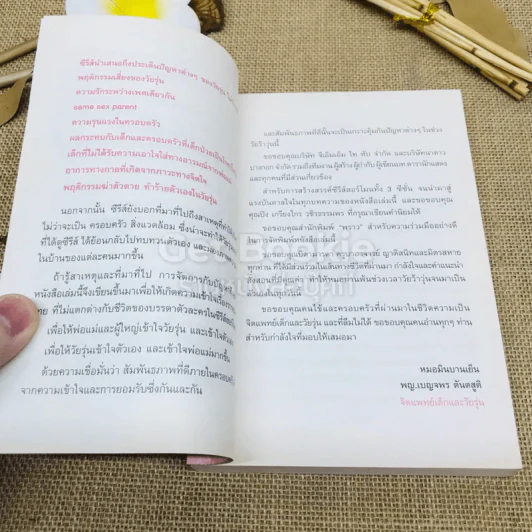 ซีรีส์นำเสนอถึงประเด็นปัญหาต่างๆ ของวัยรุ่น
พฤติกรรมเสี่ยงของวัยรุ่น
ความรักระหว่างเพศเดียวกัน
same sex parent
ความรุนแรงในครอบครัว
ผลกระทบกับเด็กและครอบครัวที่เด็กป่วย
เด็กที่ไม่ได้รับความเอาใจใส่ทางอารมณ์จาก
อาการทางกายที่เกิดจากภาวะทางจิตใจ
พฤติกรรมฆ่าตัวตาย ทำร้ายตัวเองในวัยรุ่น
นอกจากนั้น ซีรีส์ยังบอกที่มาที่ไปถึงสาเหตุที่
ไม่ว่าจะเป็น ครอบครัว สิ่งแวดล้อม ซึ่งน่าจะทำให้
ที่ได้ดูซีรีส์ ได้ย้อนกลับไปทบทวนตัวเอง
ในบ้านของแต่ละคนมากขึ้น
ถ้ารู้สาเหตุและที่มาที่ไป การจัดการกับปัญหา
หนังสือเล่มนี้จึงเขียนขึ้นมาเพื่อให้เกิดความเข้าใจ
ไทย ที่ไม่แตกต่างกับชีวิตของบรรดาตัวละครในซีรีส์
เพื่อให้พ่อแม่และผู้ใหญ่เข้าใจวัยรุ่น และเข้าใจตัวเอง
เพื่อให้วัยรุ่นเข้าใจตัวเอง และเข้าใจพ่อแม่มากขึ้น
ด้วยความเชื่อมั่นว่า สัมพันธภาพที่ดีภายในครอบครัว
จากความเข้าใจและการยอมรับซึ่งกันและกัน
และสัมพันธภาพที่ดีนั้นจะเป็นเกราะคุ้มกันปัญหาต่างๆ ในช่วง
วัยว้าวุ่นนี้
ขอขอบคุณบริษัท จีเอ็มเอ็ม ไท หับ จำกัด และบริษัทนาดาว
บางกอก จำกัด รวมถึงทีมงาน ผู้สร้าง ผู้กำกับ ผู้เขียนบท ดารานักแสดง
และทุกคนที่มีส่วนเกี่ยวข้อง
สำหรับการสร้างสรรค์ซีรีส์ฮอร์โมนทั้ง 3 ซีซั่น จนนำมาสู่
แรงบันดาลใจในทุกบทความของหนังสือเล่มนี้ และขอขอบคุณ
คุณปิง เกรียงไกร วชิรธรรมพร ที่กรุณาเขียนคำนิยมให้
ขอบคุณสำนักพิมพ์ "พราว" สำหรับความร่วมมืออย่างดี
ในการจัดพิมพ์หนังสือเล่มนี้
ทุกท่าน ที่มีส่วนร่วมในเส้นทางชีวิตที่ผ่านมา กำลังใจและคำแนะนำ
ขอขอบคุณ คนไข้และครอบครัวที่ผ่านมาในชีวิตความเป็น
จิตแพทย์เด็กและวัยรุ่น และที่ลืมไม่ได้ ขอขอบคุณคนอ่านทุกๆ ท่าน
สำหรับกำลังใจที่มอบให้เสมอมา
หมอมินบานเย็น
พญ.เบญจพร ตันตสูติ
จิตแพทย์เด็กและวัยรุ่น